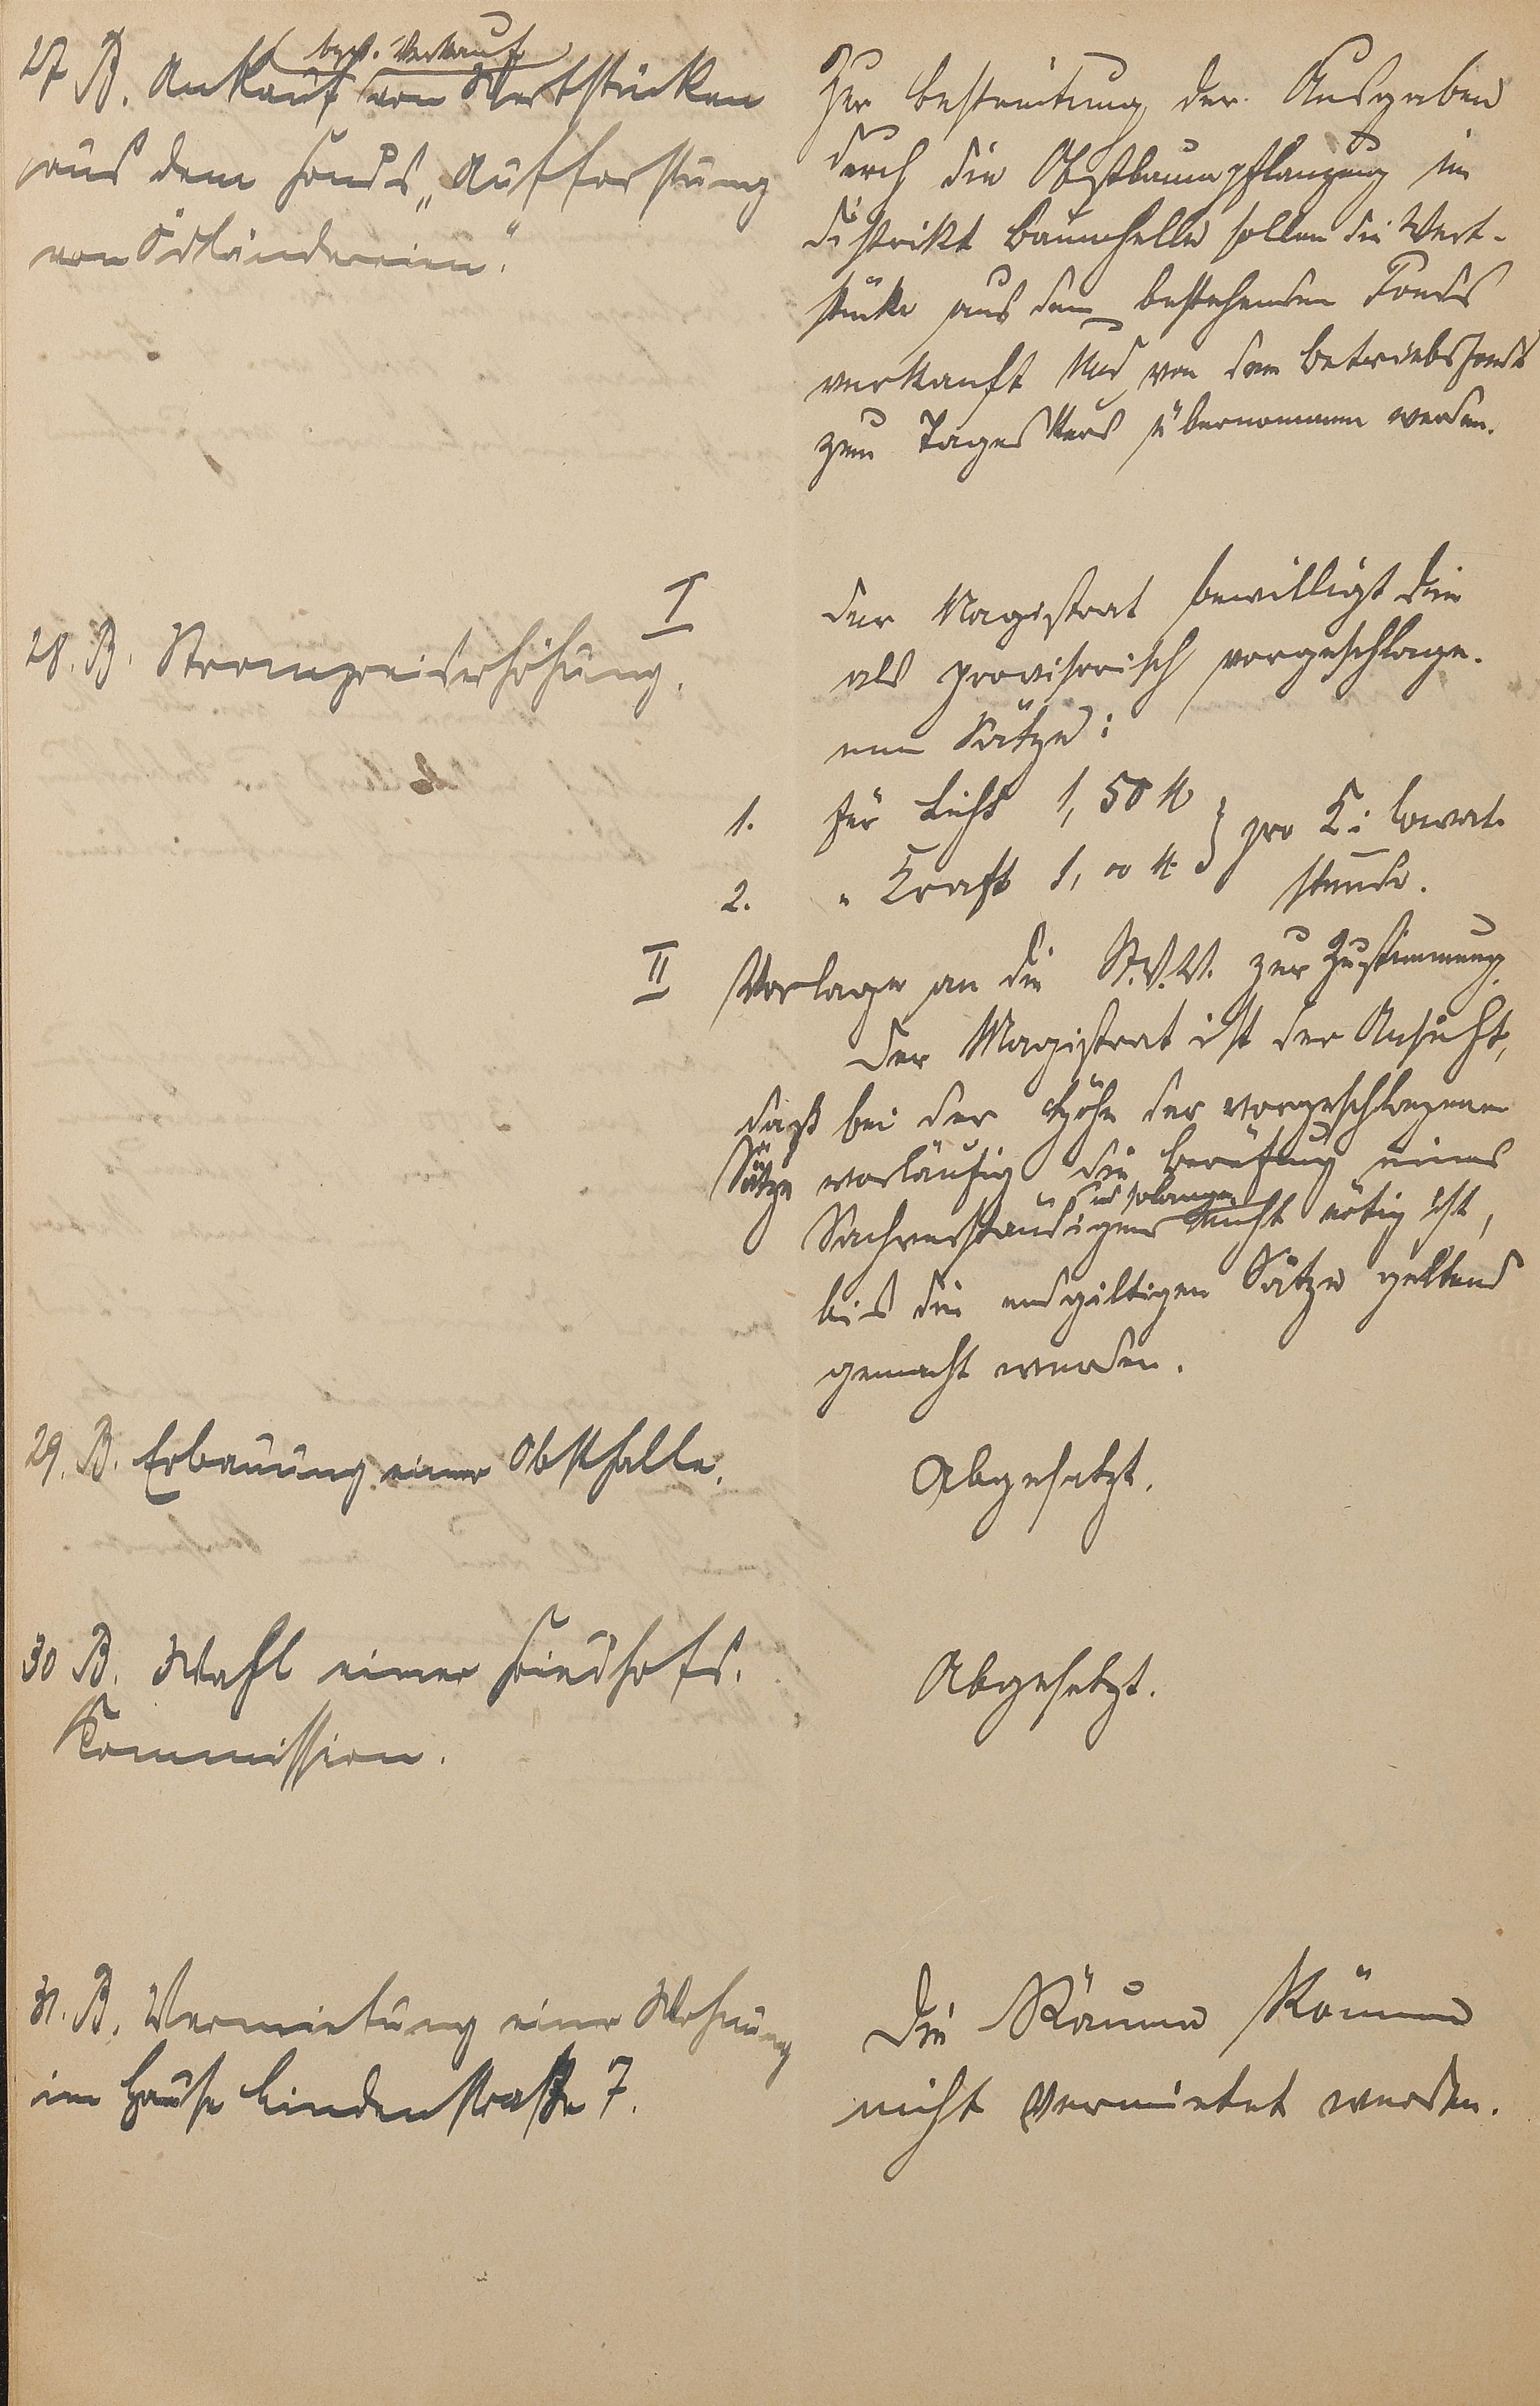 27 B. Ankauf bezw. Verkauf von Wertstücken
aus dem Fonds „Aufforstung
von Ödländereien".
Zur Bestreitung der Ausgaben
durch die Obstbaumpflanzung im
Distrikt Baumhelle sollen die Wert-
stücke aus dem bestehenden Fonds
verkauft und von dem Betriebsfonds
zum Tageskurs übernommen werden.
28. B. Strompreiserhöhung.
I Der Magistrat bewilligt die
als provisorisch vorgeschlage-
nen Sätze:
1. für Licht 1,50 M } pro Kilowat-
2. " Kraft 1,00 M. stunde.
II Vorlage an die St.V.V. zur Zustimmung.
Der Magistrat ist der Ansicht,
daß bei der Höhe der vorgeschlagenen
Sätze vorläufig die Berufung eines
Sachverständigen und solange nicht nötig ist,
bis die endgiltigen Sätze geltend
gemacht werden.
29. B. Erbauung einer Obsthalle.
Abgesetzt.
30 B. Wahl einer Friedhofs-
Kommission.
Abgesetzt.
31. B. Vermietung einer Wohnung
im Hause Lindenstraße 7.
Die Räume können
nicht vermietet werden.